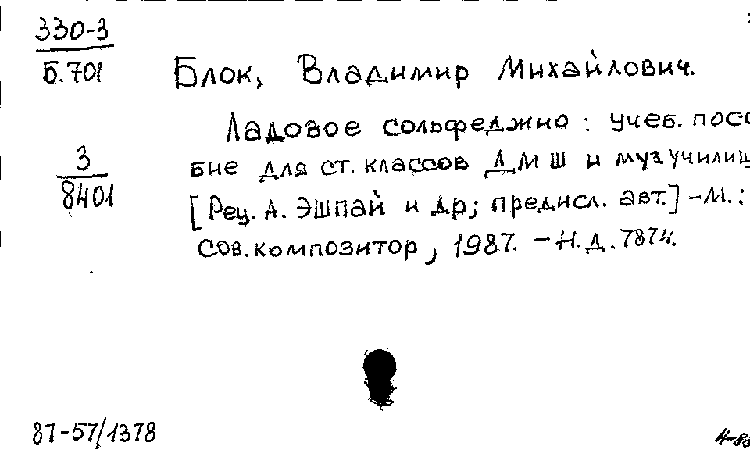 330-3
Б.701
Блок, Владимир Михайлович.
Ладовое сольфеджио: учеб. посо
3
8401
бие для ст. классов ДМШ и муз училищ
[Рец. А. Эшпай и др; предисл. авт.] -М.:
Сов. композитор, 1987. - Н.д. 7874.
87-57/1378